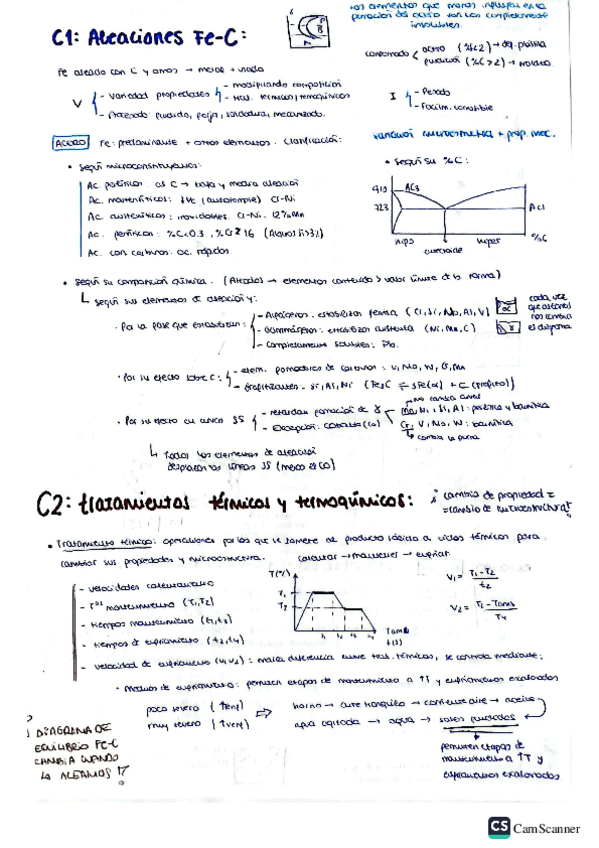 Los elementos que menos influyen en la
formación del acero son los completamente
insolubles.
C1: Aleaciones Fe-C:
conformado acero (%C<2) → def. plástica
fundición (%C>2) → moldeo
Fe aleado con C y otros → metal + usado
V - Variedad propiedades - modificando composición
- trat. térmicos/termoquímicos
- Procesado: fundido, forja, soldadura, mecanizado.
I - Pesado
- Fácilm. corrosible
ACERO Fe: predominante + otros elementos. Clasificación:
variación microestructura + prop. mec.
• Según microconstituyentes:
Ac. ferríticos: C → baja y media aleación
Ac. martensíticos: (autotemple) Cr-Ni
Ac. austeníticos: inoxidables. Cr-Ni. 12%Mn
Ac. ferríticos: %C<0.3, %Cr≥16 (Algunos 3%)
Ac. con carburos: ac. rápidos.
• Según su %C:
910
AC3
723
AC1
hipo
hiper
%C
eutectoide
• Según su composición química. (Aleados → elementos contenido > valor límite de la norma)
Según sus elementos de aleación y:
• Por la fase que estabilizan: - Alfágenos: estabilizan ferrita (Cr, Si, Mo, Al, V) α
- Gammágenos: estabilizan austenita (Ni, Mn, C) γ
- Completamente solubles: Pb.
cada vez
que aleamos
nos cambia
el diagrama
• Por su efecto sobre C: - elem. formadores de carburos: V, Mo, W, Cr, Mn
- Grafitizantes: Si, Al, Ni (Fe3C ⇌ 3Fe(α) + C (grafito))
• Por su efecto en curvas SS - retardan formación de γ
- Excepción: cobalto (Co)
No cambia curvas
Mn, Ni, Si, Al: perlítica y bainítica
Cr, V, Mo, W: bainítica
cambia la forma
Todos los elementos de aleación
desplazan las líneas SS (menos el Co)
C2: tratamientos térmicos y termoquímicos:
¡ cambio de propiedad =
= cambio de microestructura!
• Tratamiento térmico: operaciones por las que se somete al producto lógico a ciclos térmicos para
cambiar sus propiedades y microestructura. calentar → mantener → enfriar.
- velocidades calentamiento
- Tas mantenimiento (T1, T2)
- tiempos mantenimiento (t1, t3)
- tiempos de enfriamiento (t2, t4)
- velocidad de enfriamiento (v1, v2): marca diferencia entre trat. térmicos, se controla mediante:
T(ºC)
T1
T2
t1 t2 t3 t4
Tamb
t(s)
V1 = T1 - T2 / t2
V2 = T2 - Tamb / T4
• Medios de enfriamiento: permiten etapas de mantenimiento a ↑T y enfriamientos escalonados
poco severo (↑enf)
muy severo (↑venf)
horno → aire tranquilo → corriente aire → aceites
agua agitada → agua → sales fundidas
permiten etapas de
mantenimiento a ↑T y
enfriamientos escalonados
¡ DIAGRAMA DE
EQUILIBRIO FE-C
CAMBIA CUANDO
LO ALEAMOS !
CS CamScanner